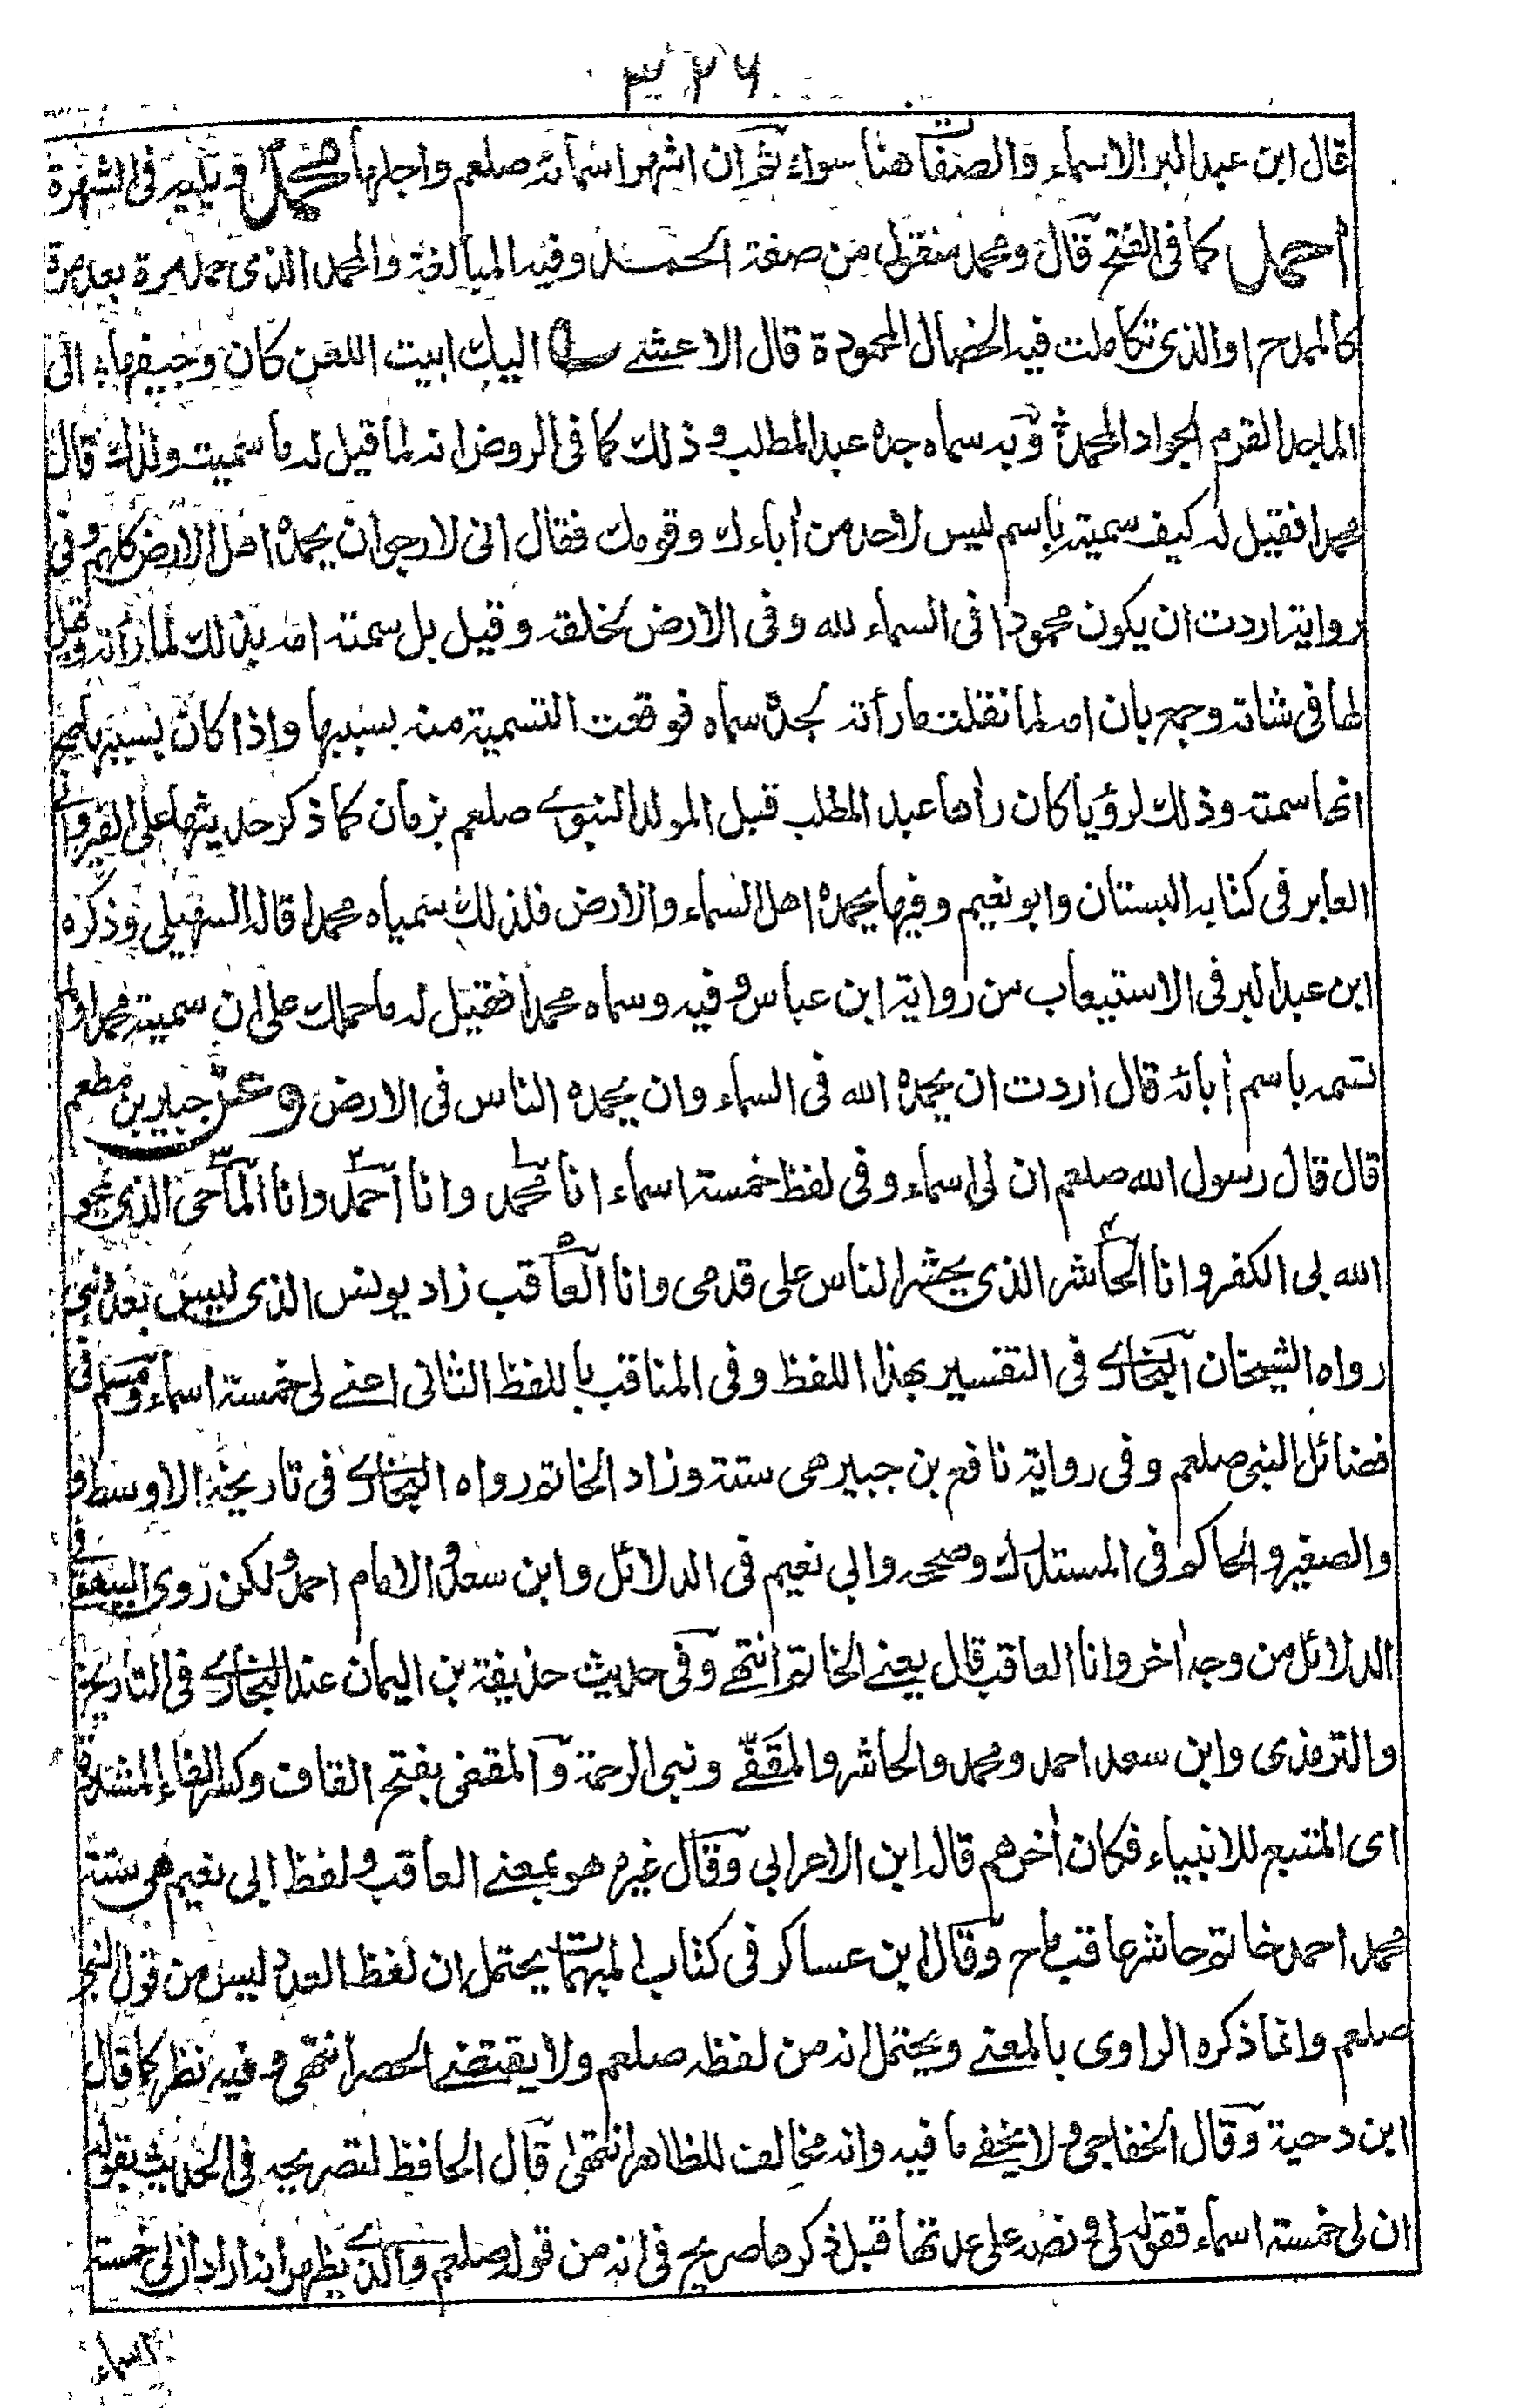 ۳۲۶
قال ابن عبد البر الاسماء والصفات هنا سواء ثم ان اشهر اسمائه صلعم واجلها محمد ويليه في الشهرة
احمد كما في الفتح قال ومحمد منقول من صفة الحمد وفيه المبالغة والمحمد الذي حمد مرة بعد مرة
كالممدح او الذي تكاملت فيه الخصال المحمودة قال الاعشى اليك ابيت اللعن كان وجيفها، الى
الماجد القرم الجواد المحمد، وبه سماه جده عبد المطلب وذلك كما في الروض انه لما قيل له ما سميت ولدك قال
محمدا فقيل له كيف سميته باسم ليس لاحد من أباءك وقومك فقال انى لارجو ان يحمده اهل الارض كلهم وفى
رواية اردت ان يكون محمودا فى السماء لله وفى الارض لخلقه وقيل بل سمته امه بذلك لما رأته وقيل
لها فى شانه وجمع بان امه لما نقلت ما رأته لجده سماه فوقعت التسمية منه بسببها واذا كان بسببها يصح
انها سمته وذلك لرؤيا كان رأها عبد المطلب قبل المولد النبوى صلعم بزمان كما ذكر حديثها على القيروانى
العابر فى كتابه البستان وابو نعيم وفيها يحمده اهل السماء والارض فلذلك سمياه محمدا قاله السهيلى وذكره
ابن عبد البر فى الاستيعاب من رواية ابن عباس وفيه وسماه محمدا فقيل له ما حملك على ان سميته محمدا ولم
تسمه باسم أبائه قال اردت ان يحمده الله فى السماء وان يحمده الناس فى الارض وعن جبير بن مطعم
قال قال رسول الله صلعم ان لى اسماء وفى لفظ خمسة اسماء انا محمد وانا احمد وانا الماحى الذى يمحو
الله بى الكفر وانا الحاشر الذى يحشر الناس على قدمى وانا العاقب زاد يونس الذى ليس بعده نبى
رواه الشيخان البخارى فى التفسير بهذا اللفظ وفى المناقب باللفظ الثانى اعنى لى خمسة اسماء ومسلم فى
فضائل النبى صلعم وفى رواية نافع بن جبير هى ستة وزاد الخاتم رواه البخارى فى تاريخه الاوسط
والصغير والحاكم فى المستدرك وصححه وابى نعيم فى الدلائل وابن سعد والامام احمد ولكن روى البيهقى فى
الدلائل من وجه أخر وانا العاقب قال يعنى الخاتم انتهى وفى حديث حذيفة بن اليمان عند البخارى فى التاريخ
والترمذى وابن سعد احمد ومحمد والحاشر والمقفى ونبى الرحمة والمقفى بفتح القاف وكسر الفاء المشددة
اى المتبع للانبياء فكان أخرهم قاله ابن الاعرابى وقال غيره هو بمعنى العاقب ولفظ ابى نعيم هى ستة
محمد احمد خاتم حاشر عاقب ماح وقال ابن عساكر فى كتاب المبهمات يحتمل ان لفظ العدد ليس من قول النبى
صلعم وانما ذكره الراوى بالمعنى ويحتمل انه من لفظه صلعم ولا يقتضى الحصر انتهى وفيه نظر كما قال
ابن دحية وقال الخفاجى ولا يخفى ما فيه وانه مخالف للظاهر انتهى قال الحافظ لتصريحه فى الحديث بقوله
ان لى خمسة اسماء فقوله لى ونصه على عدتها قبل ذكرها صريح فى انه من قوله صلعم والذى يظهر انه اراد ان لى خمسة
اسماء